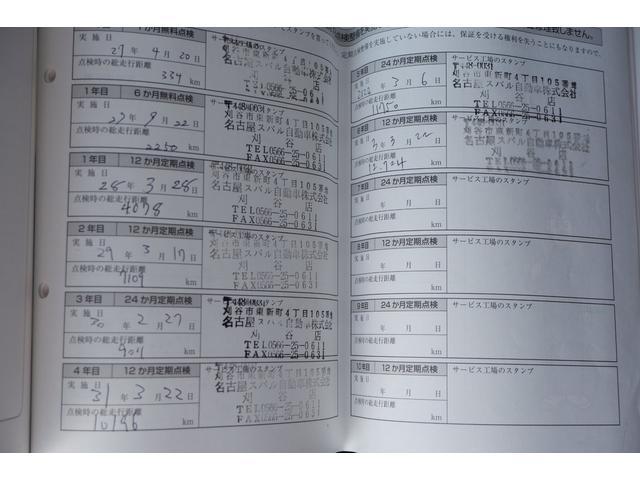 1か月無料点検
実施日
27年4月20日
点検時の総走行距離
339 km
刈谷市東新町4丁目105番地
名古屋スバル自動車株式会社
刈谷店
1年目 6か月無料点検
実施日
27年9月22日
点検時の総走行距離
2250 km
〒448-0031
刈谷市東新町4丁目105番地
名古屋スバル自動車株式会社
刈谷店
TEL0566-25-0611
FAX0566-25-0631
1年目 12か月定期点検
実施日
28年3月28日
点検時の総走行距離
4078 km
刈谷市東新町4丁目105番地
名古屋スバル自動車株式会社
刈谷店
TEL0566-25-0611
FAX0566-25-0631
2年目 12か月定期点検
実施日
29年3月17日
点検時の総走行距離
7109 km
刈谷市東新町4丁目105番地
名古屋スバル自動車株式会社
刈谷店
TEL0566-25-0611
FAX0566-25-0631
3年目 24か月定期点検
実施日
30年2月27日
点検時の総走行距離
km
刈谷市東新町4丁目105番地
名古屋スバル自動車株式会社
刈谷店
TEL0566-25-0611
FAX0566-25-0631
4年目 12か月定期点検
実施日
31年3月22日
点検時の総走行距離
10196 km
刈谷市東新町4丁目105番地
名古屋スバル自動車株式会社
刈谷店
TEL0566-25-0611
FAX0566-25-0631
定期点検整備を実施していない場合には、保証を受ける権利を失うこともになりますので、
5年目 24か月定期点検
サービス工場のスタンプ
実施日
年3月6日
点検時の総走行距離
11750 km
〒448-0031
刈谷市東新町4丁目105番地
名古屋スバル自動車株式会社
刈谷店
TEL0566-25-0611
FAX0566-25-0631
6年目 12か月定期点検
実施日
3年3月22日
点検時の総走行距離
12,724 km
7年目 24か月定期点検
サービス工場のスタンプ
実施日
年 月 日
点検時の総走行距離
km
8年目 12か月定期点検
サービス工場のスタンプ
実施日
年 月 日
点検時の総走行距離
km
9年目 24か月定期点検
サービス工場のスタンプ
実施日
年 月 日
点検時の総走行距離
km
10年目 12か月定期点検
サービス工場のスタンプ
実施日
年 月 日
点検時の総走行距離
km